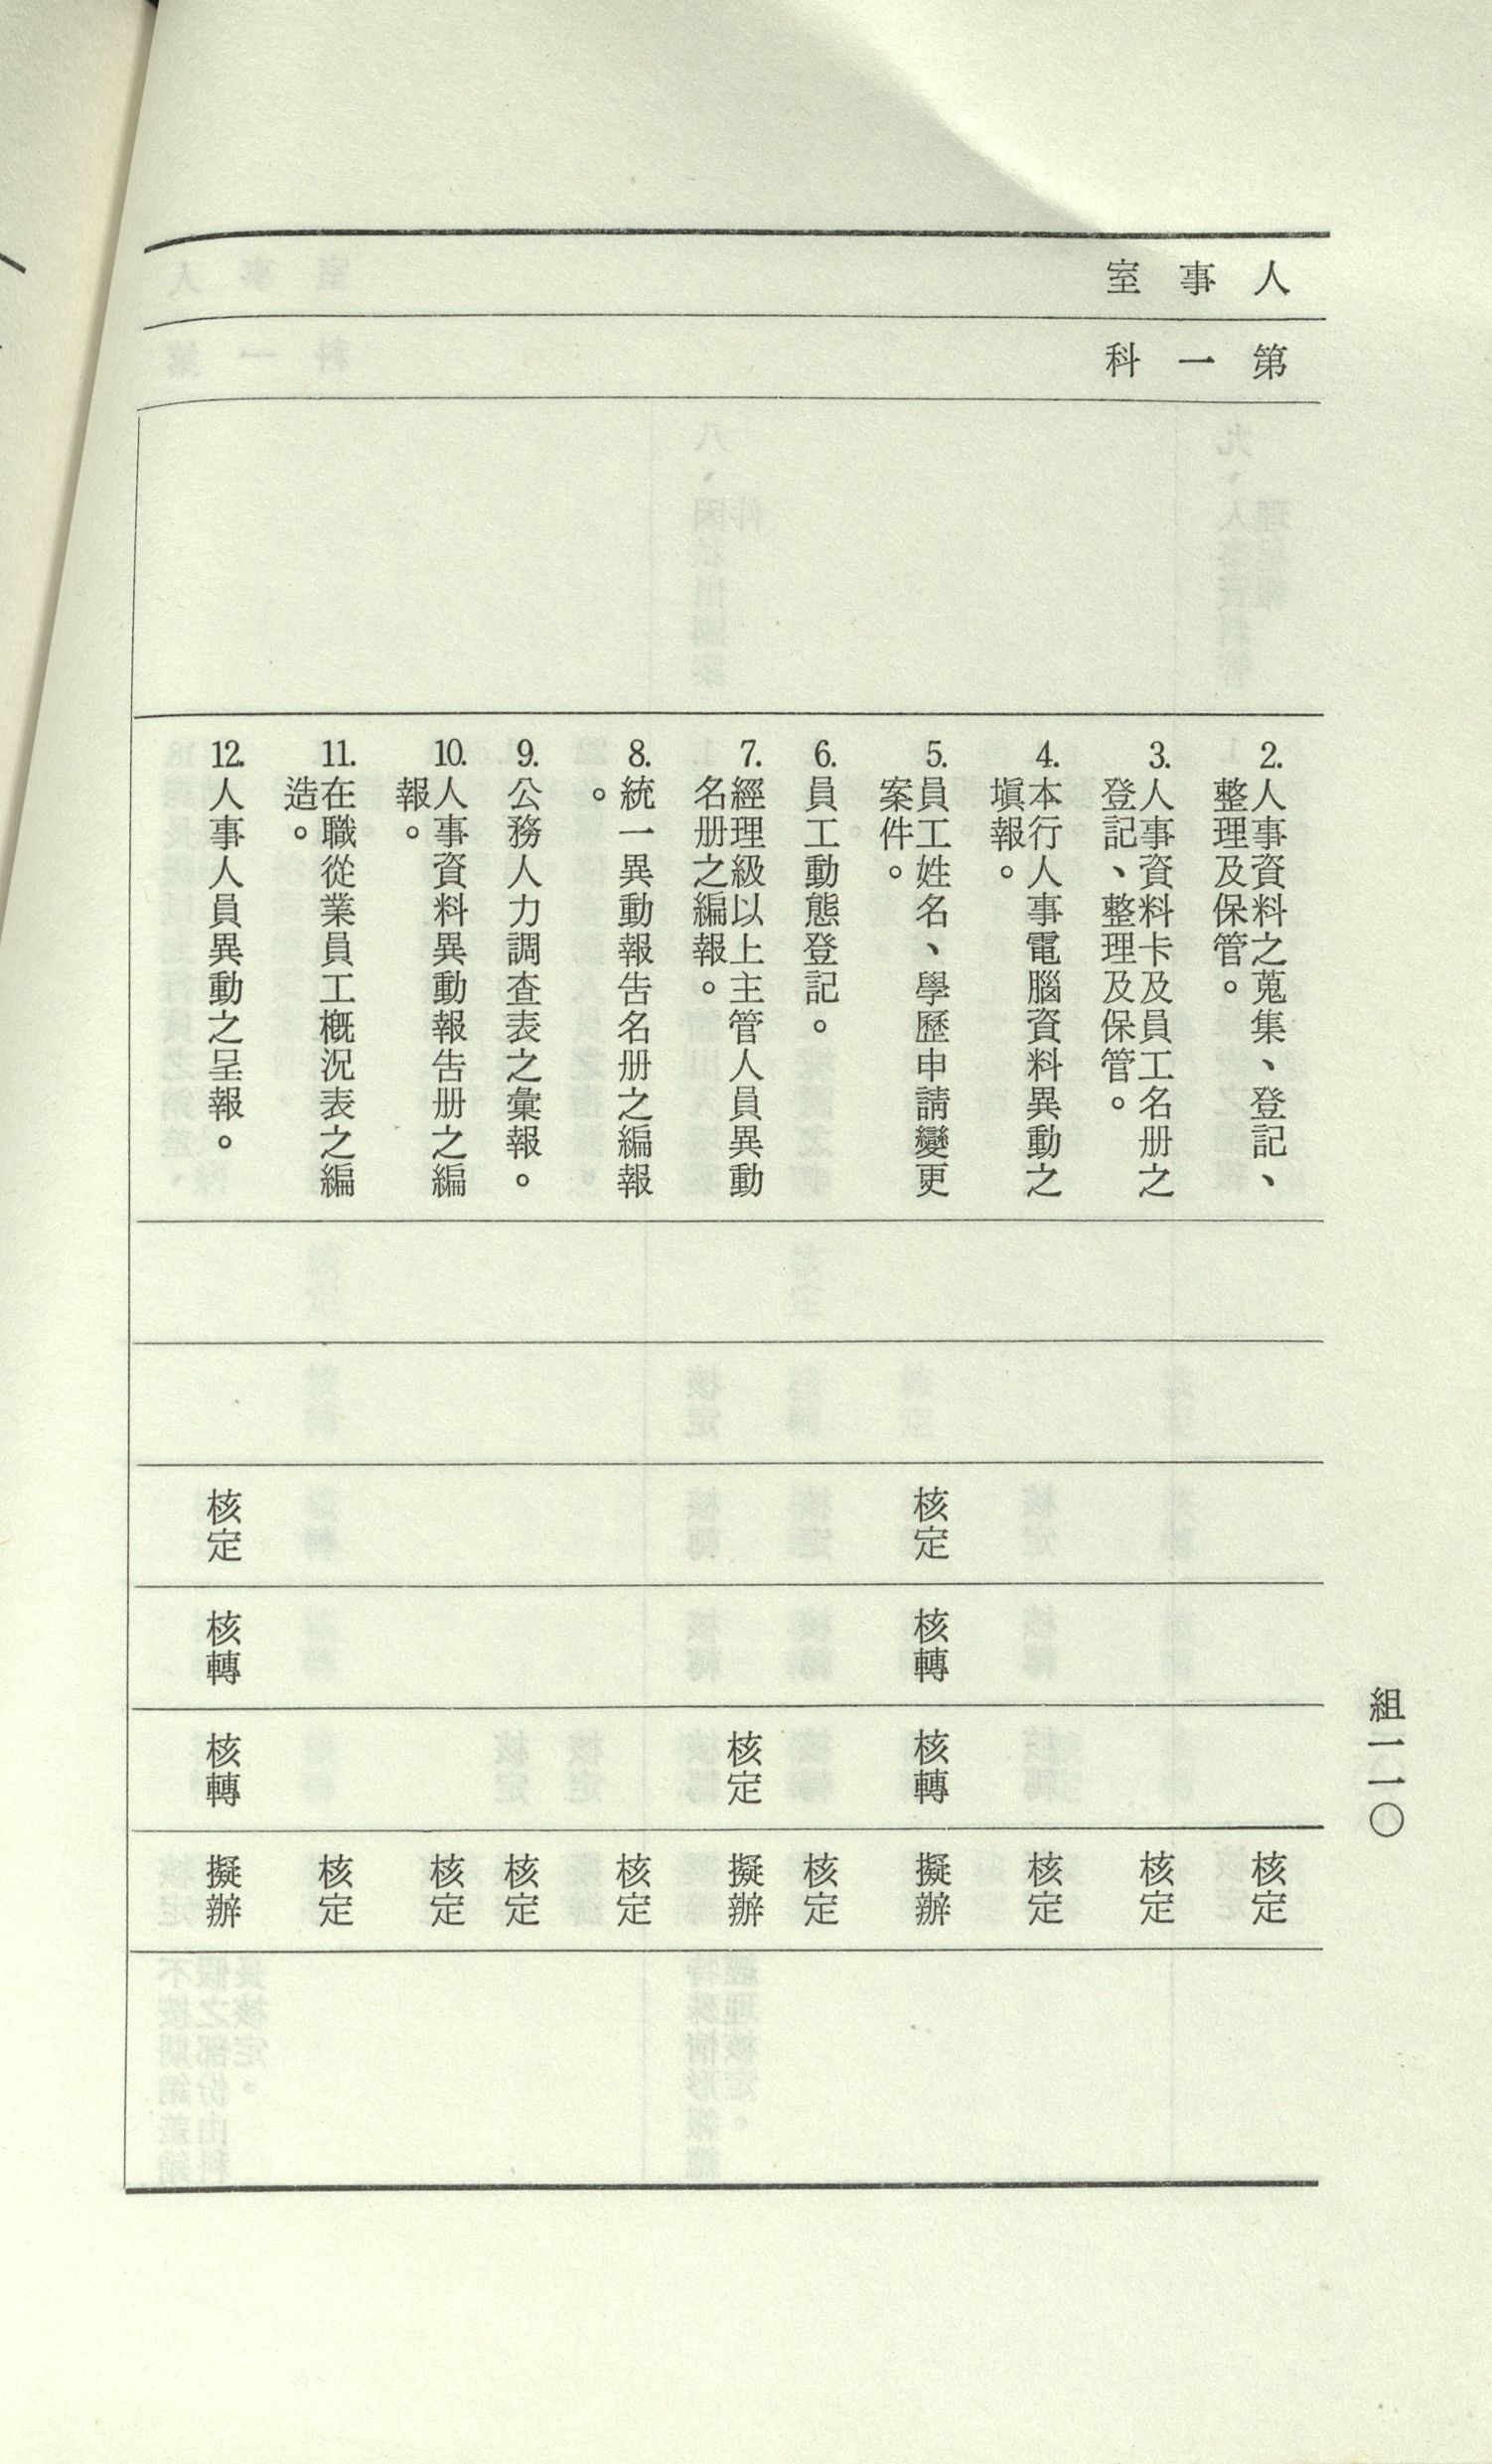 組一一〇
人事室
第一科
2.人事資料之蒐集、登記、
整理及保管。
核定
3.人事資料卡及員工名册之
登記、整理及保管。
核定
4.本行人事電腦資料異動之
塡報。
核定
5.員工姓名、學歷申請變更
案件。
核定
核轉
核轉
擬辦
6.員工動態登記。
核定
7.經理級以上主管人員異動
名册之編報。
核定
擬辦
8.統一異動報告名册之編報
。
核定
9.公務人力調查表之彙報。
核定
10.人事資料異動報告册之編
報。
核定
11.在職從業員工概況表之編
造。
核定
12.人事人員異動之呈報。
核定
核轉
核轉
擬辦